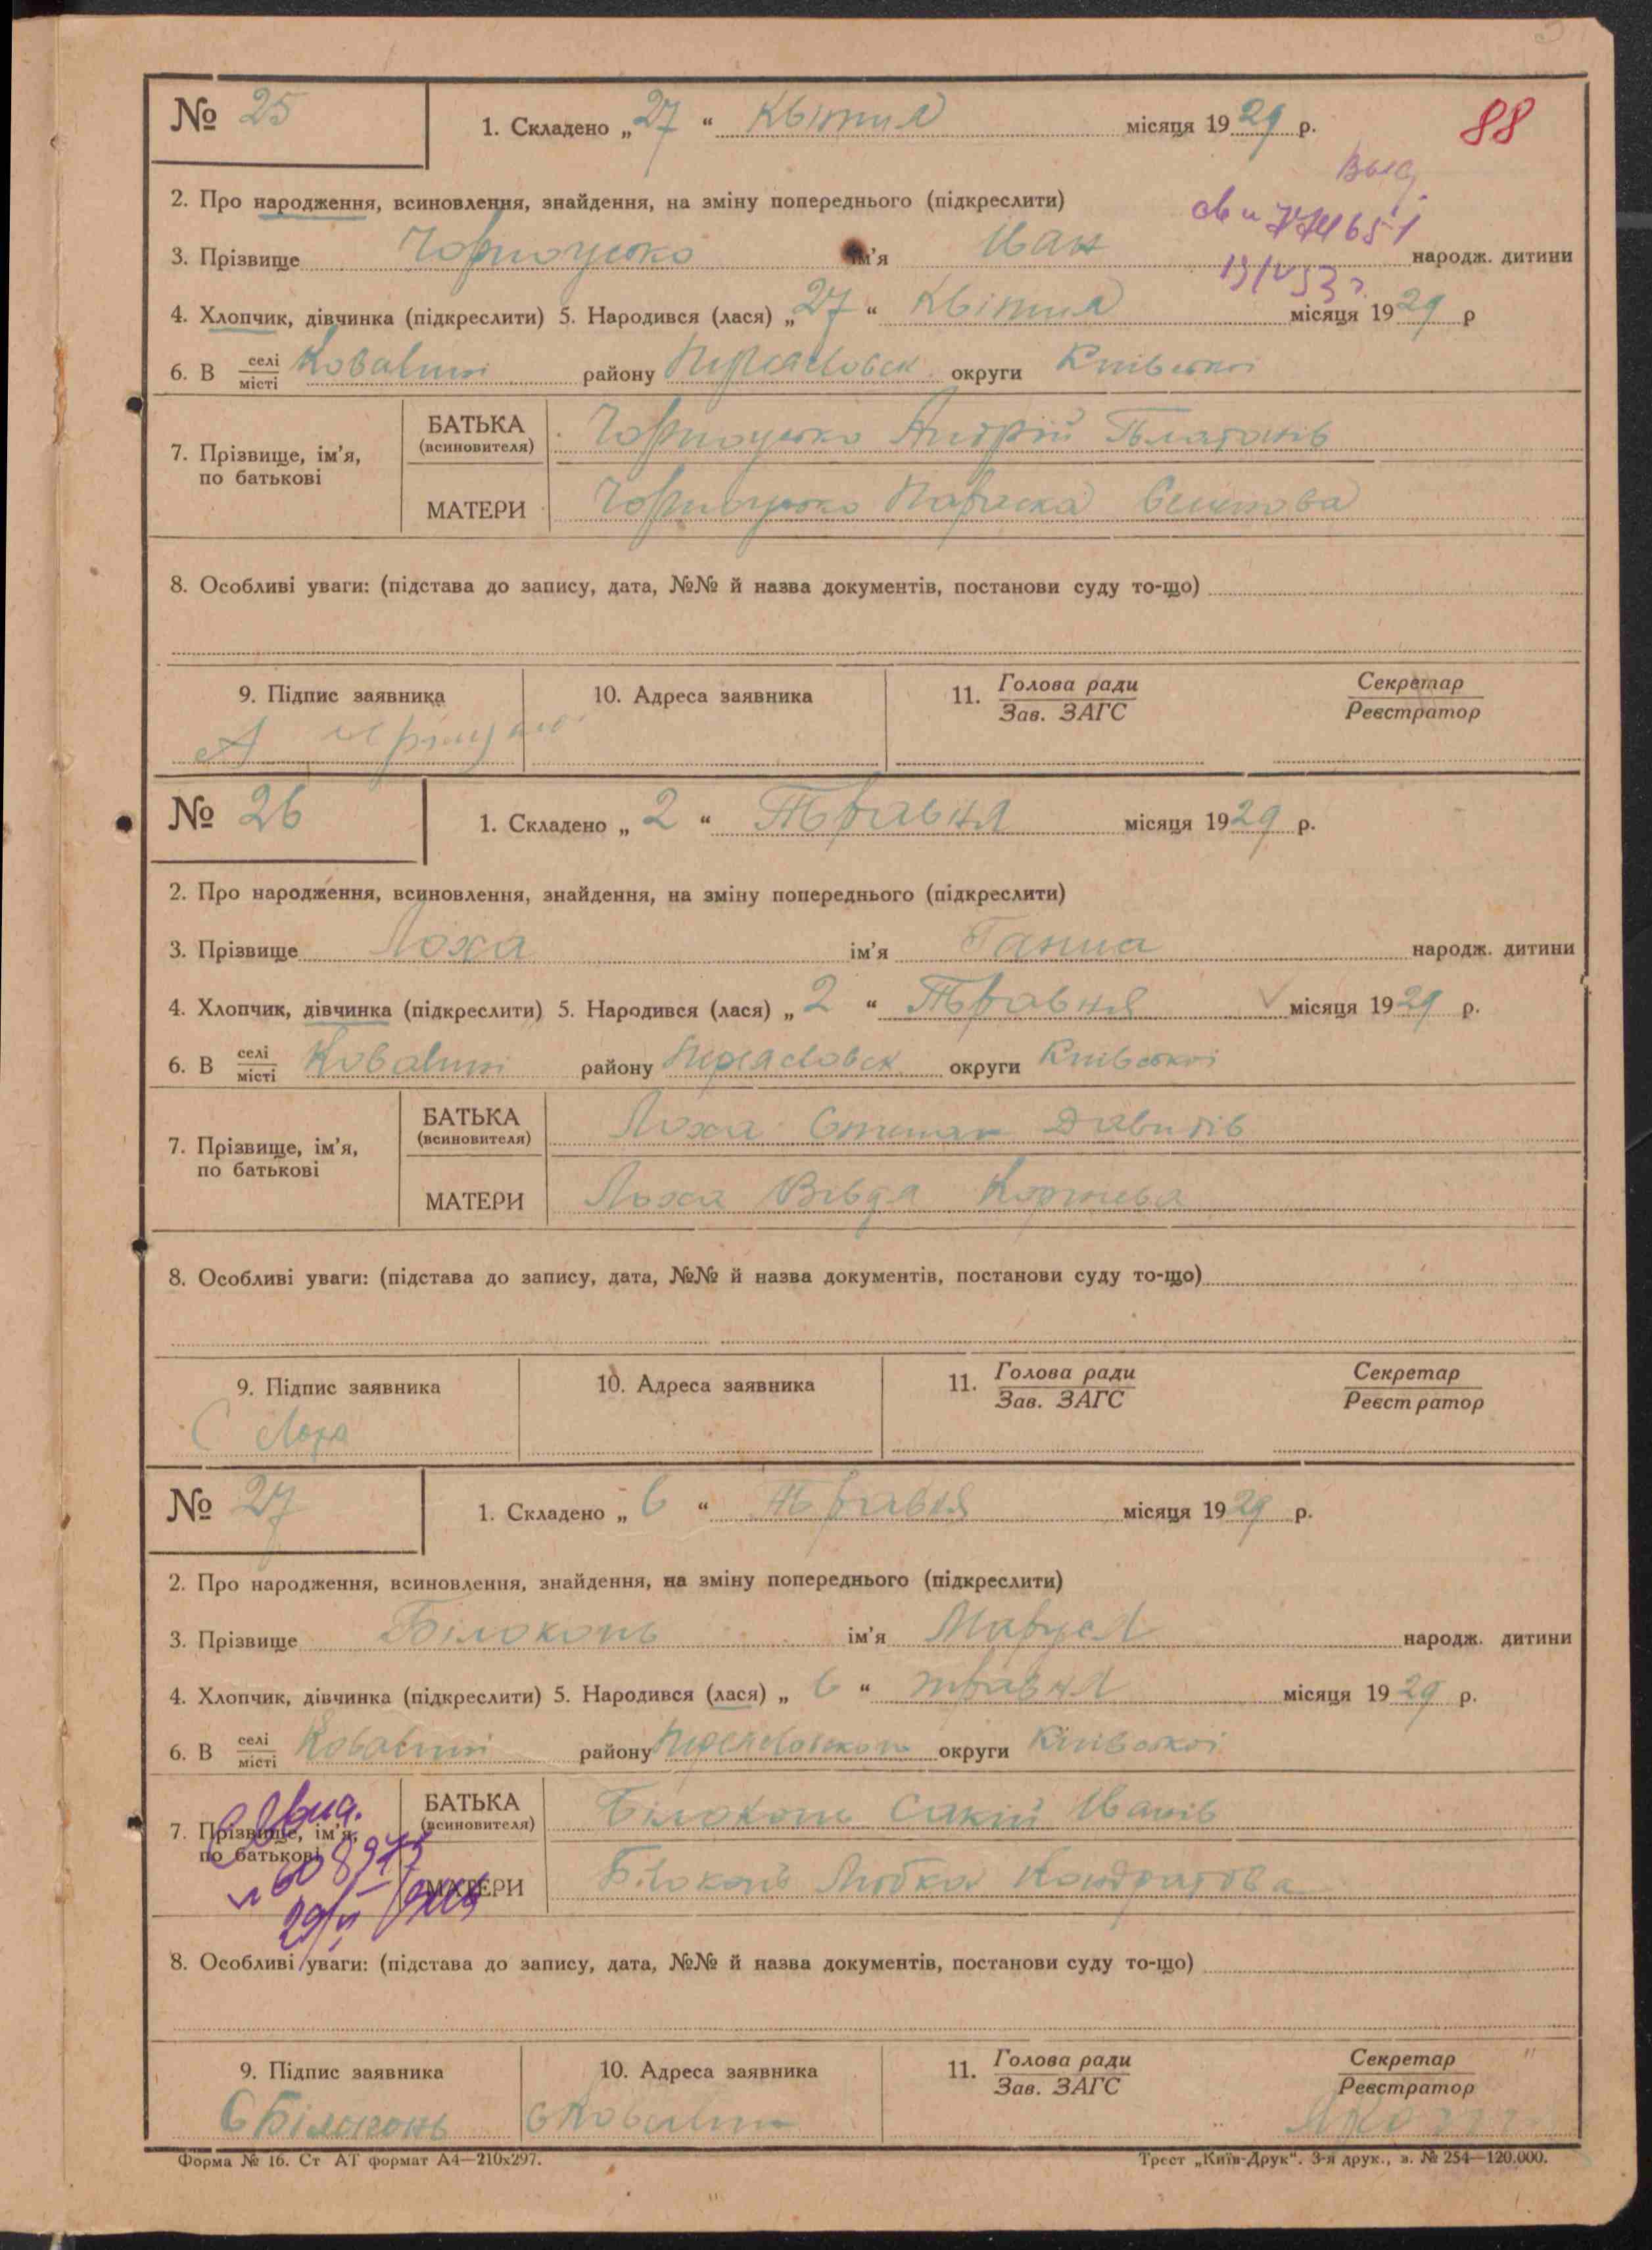 88
№ 25 1. Складено „27“ Квітня місяця 1929 р.
Выд.
2. Про народження, всиновлення, знайдення, на зміну попереднього (підкреслити)
3. Прізвище Чорноусько ім'я Іван народж. дитини
4. Хлопчик, дівчинка (підкреслити) 5. Народився (лася) „27“ Квітня місяця 1929 р
6. В селі місті Ковалині району Переясловськ округи Київської
7. Прізвище, ім'я, по батькові
БАТЬКА (всиновителя) Чорноусько Андрій Платонів
МАТЕРИ Чорноусько Параска
8. Особливі уваги: (підстава до запису, дата, №№ й назва документів, постанови суду то-що)
9. Підпис заявника 10. Адреса заявника 11. Голова ради Зав. ЗАГС Секретар Реєстратор
А
№ 26 1. Складено „2“ Травня місяця 1929 р.
2. Про народження, всиновлення, знайдення, на зміну попереднього (підкреслити)
3. Прізвище Лоха ім'я Ганна народж. дитини
4. Хлопчик, дівчинка (підкреслити) 5. Народився (лася) „2“ Травня місяця 1929 р.
6. В селі місті Ковалині району Переясловськ округи Київської
7. Прізвище, ім'я, по батькові
БАТЬКА (всиновителя) Лоха Степан Давидів
МАТЕРИ Лоха Вівдя
8. Особливі уваги: (підстава до запису, дата, №№ й назва документів, постанови суду то-що)
9. Підпис заявника 10. Адреса заявника 11. Голова ради Зав. ЗАГС Секретар Реєстратор
С Лоха
№ 27 1. Складено „6“ Травня місяця 1929 р.
2. Про народження, всиновлення, знайдення, на зміну попереднього (підкреслити)
3. Прізвище Білоконь ім'я Маруся народж. дитини
4. Хлопчик, дівчинка (підкреслити) 5. Народився (лася) „6“ травня місяця 1929 р.
6. В селі місті Ковалині району Переясловського округи Київської
7. Прізвище, ім'я, по батькові
БАТЬКА (всиновителя) Білоконь Сакій Іванів
МАТЕРИ Білоконь Любка Кондратова
8. Особливі уваги: (підстава до запису, дата, №№ й назва документів, постанови суду то-що)
9. Підпис заявника 10. Адреса заявника 11. Голова ради Зав. ЗАГС Секретар Реєстратор
С Білоконь с Ковалин
Форма № 16. Ст АТ формат А4—210х297. Трест „Київ-Друк“. 3-я друк., з. № 254—120.000.